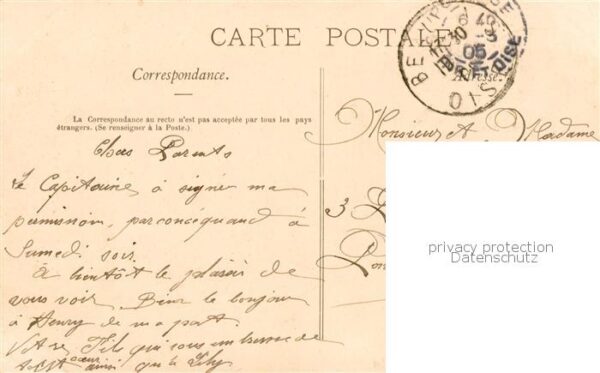 CARTE POSTALE
Correspondance.
Adresse.
La Correspondance au recto n'est pas acceptée par tous les pays
étrangers. (Se renseigner à la Poste.)
Chers Parents
Le Capitaine à signer ma
permission, parconcéquand à
Samedi soir.
À bientôt le plaisir de
vous voir. Bien le bonjour
à Henry de ma part.
Votre Fils qui vous embrasse de
tout cœur ainsi que Lily
Monsieur et Madame
3
OISE
05
privacy protection
Datenschutz